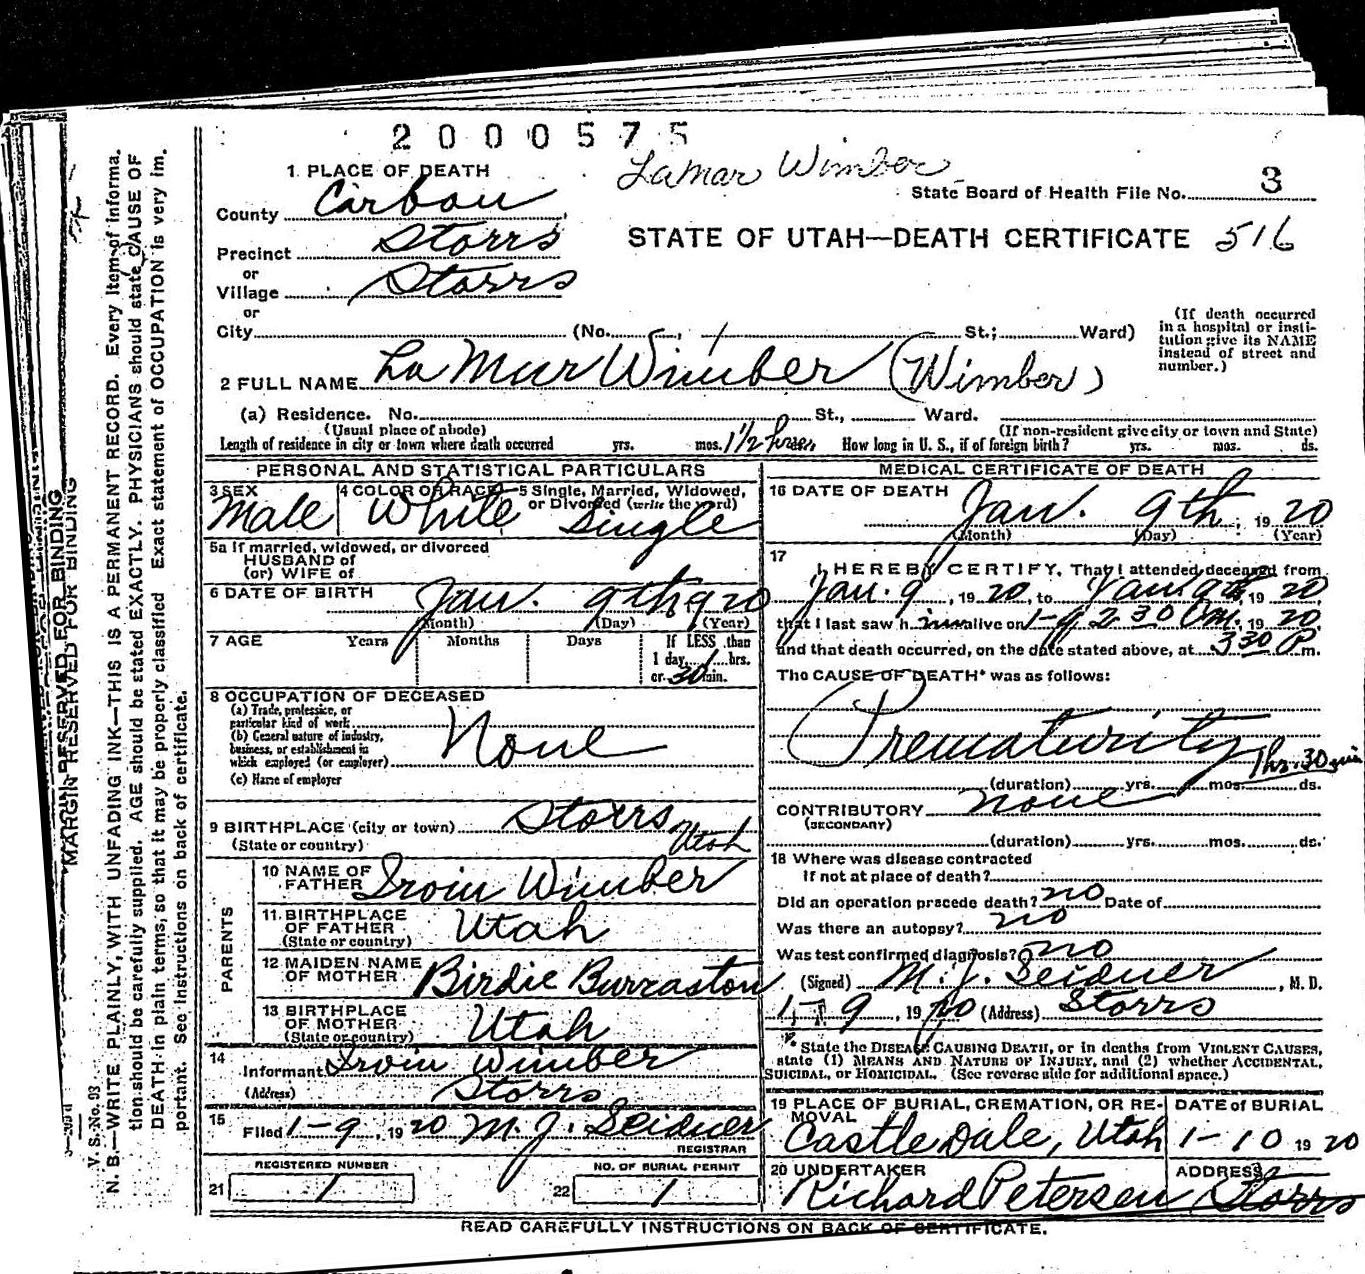 2000575
LaMar Wimber
1. PLACE OF DEATH
State Board of Health File No. 3
County Carbon
STATE OF UTAH—DEATH CERTIFICATE 516
Precinct Storrs
or
Village Storrs
or
City (No. St.; Ward)
(If death occurred
in a hospital or insti-
tution give its NAME
instead of street and
number.)
2 FULL NAME La Mur Wimber (Wimber)
(a) Residence. No. St., Ward.
(Usual place of abode) (If non-resident give city or town and State)
Length of residence in city or town where death occurred yrs. mos. 1 1/2 hrs ds. How long in U. S., if of foreign birth? yrs. mos. ds.
PERSONAL AND STATISTICAL PARTICULARS
3 SEX
Male
4 COLOR OR RACE
White
5 Single, Married, Widowed,
or Divorced (write the word)
Single
5a If married, widowed, or divorced
HUSBAND of
(or) WIFE of
6 DATE OF BIRTH
Jan. 9th 1920
(Month) (Day) (Year)
7 AGE Years Months Days
If LESS than
1 day, 1 hrs.
or 30 min.
8 OCCUPATION OF DECEASED
(a) Trade, profession, or
particular kind of work
(b) General nature of industry,
business, or establishment in
which employed (or employer)
None
(c) Name of employer
9 BIRTHPLACE (city or town) Storrs
(State or country) Utah
PARENTS
10 NAME OF
FATHER Irvin Wimber
11. BIRTHPLACE
OF FATHER
(State or country) Utah
12 MAIDEN NAME
OF MOTHER Birdie Burraston
13 BIRTHPLACE
OF MOTHER
(State or country) Utah
14
Informant Irvin Wimber
(Address) Storrs
15 Filed 1-9, 1920 M. J. Seidner
REGISTRAR
REGISTERED NUMBER
21 1
NO. OF BURIAL PERMIT
22 1
MEDICAL CERTIFICATE OF DEATH
16 DATE OF DEATH
Jan. 9th, 1920
(Month) (Day) (Year)
17
I HEREBY CERTIFY, That I attended deceased from
Jan. 9, 1920, to Jan. 9th, 1920,
that I last saw him alive on 1-9 2 30 P.M. 1920,
and that death occurred, on the date stated above, at 3 30 P m.
The CAUSE OF DEATH* was as follows:
Prematurity
1 hr. 30 min
(duration) yrs. mos. ds.
CONTRIBUTORY none
(SECONDARY)
(duration) yrs. mos. ds.
18 Where was disease contracted
If not at place of death?
Did an operation precede death? no Date of
Was there an autopsy? no
Was test confirmed diagnosis? no
(Signed) M. J. Seidner, M. D.
1-9, 1920 (Address) Storrs
* State the DISEASE CAUSING DEATH, or in deaths from VIOLENT CAUSES,
state (1) MEANS AND NATURE OF INJURY, and (2) whether ACCIDENTAL,
SUICIDAL, or HOMICIDAL. (See reverse side for additional space.)
19 PLACE OF BURIAL, CREMATION, OR RE-
MOVAL
Castle Dale, Utah
DATE of BURIAL
1-10 1920
20 UNDERTAKER
Richard Petersen
ADDRESS
Storrs
READ CAREFULLY INSTRUCTIONS ON BACK OF CERTIFICATE.
MARGIN RESERVED FOR BINDING
V. S. No. 93
N. B.—WRITE PLAINLY, WITH UNFADING INK—THIS IS A PERMANENT RECORD. Every Item of informa.
tion should be carefully supplied. AGE should be stated EXACTLY. PHYSICIANS should state CAUSE OF
DEATH in plain terms, so that it may be properly classified Exact statement of OCCUPATION is very im.
portant. See instructions on back of certificate.